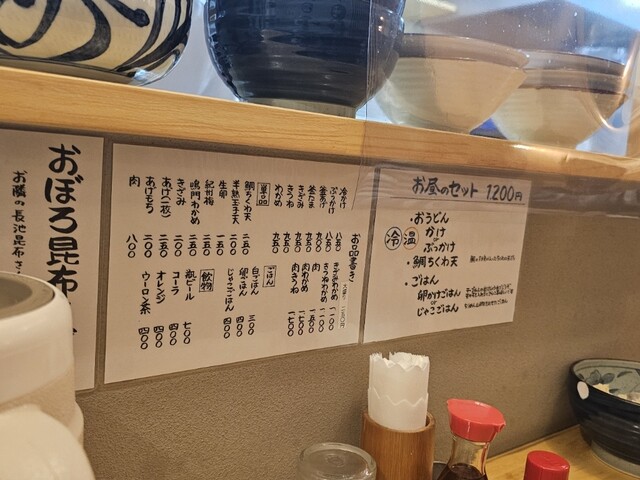 おぼろ昆布
お隣の長池昆布さ
お品書き
冷かけ 八五〇
ぶっかけ 八五〇
釜あげ 八五〇
釜たま 九〇〇
きざみ 九五〇
きつね 九五〇
わかめ 九五〇
きざみわかめ 一一〇〇
きつねわかめ 一二〇〇
肉 一五〇〇
肉わかめ 一六〇〇
肉きつね 一七〇〇
単品
鯛ちくわ天 二五〇
半熟玉子天
生卵
紀州梅 一五〇
鳴門わかめ 二〇〇
きざみ 二五〇
あげ(一枚) 二〇〇
あげもち 三〇〇
肉 八〇〇
ごはん
白ごはん 三〇〇
卵ごはん 四〇〇
じゃこごはん 四〇〇
飲物
瓶ビール 七〇〇
コーラ 四〇〇
オレンジ 四〇〇
ウーロン茶 四〇〇
お昼のセット 1,200円
・おうどん
冷 温
かけ
or
ぶっかけ
・鯛ちくわ天
・ごはん
卵かけごはん
or
じゃこごはん